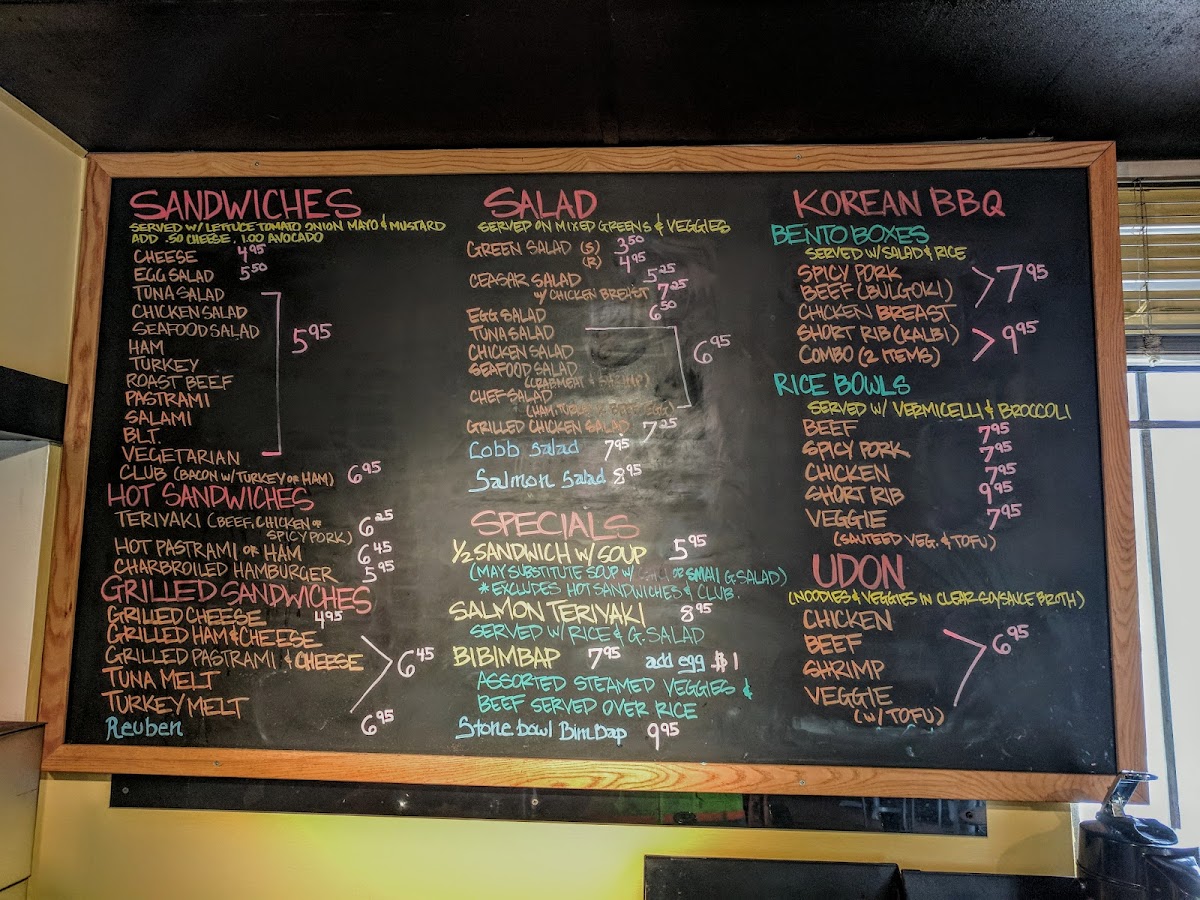 SANDWICHES
SERVED W/ LETTUCE TOMATO ONION MAYO & MUSTARD
ADD .50 CHEESE, 1.00 AVOCADO
CHEESE 4.95
EGG SALAD 5.50
TUNA SALAD
CHICKEN SALAD
SEAFOOD SALAD 5.95
HAM
TURKEY
ROAST BEEF
PASTRAMI
SALAMI
BLT.
VEGETARIAN
CLUB (BACON W/TURKEY OR HAM) 6.95
HOT SANDWICHES
TERIYAKI (BEEF, CHICKEN OR
SPICY PORK) 6.25
HOT PASTRAMI OR HAM 6.45
CHARBROILED HAMBURGER 5.95
GRILLED SANDWICHES
GRILLED CHEESE 4.95
GRILLED HAM & CHEESE
GRILLED PASTRAMI & CHEESE 6.45
TUNA MELT
TURKEY MELT
Reuben 6.95
SALAD
SERVED ON MIXED GREENS & VEGGIES
GREEN SALAD (S) 3.50
(R) 4.95
CEASAR SALAD 5.25
W/ CHICKEN BREAST 7.25
EGG SALAD 6.50
TUNA SALAD
CHICKEN SALAD 6.95
SEAFOOD SALAD
(CRABMEAT & SHRIMP)
CHEF SALAD
(HAM, TURKEY, EGG)
GRILLED CHICKEN SALAD 7.25
Cobb Salad 7.95
Salmon Salad 8.95
SPECIALS
1/2 SANDWICH W/ SOUP 5.95
(MAY SUBSTITUTE SOUP W/ OR SMALL G.SALAD)
*EXCLUDES HOT SANDWICHES & CLUB.
SALMON TERIYAKI 8.95
SERVED W/ RICE & G. SALAD
BIBIMBAP 7.95 add egg $1
ASSORTED STEAMED VEGGIES &
BEEF SERVED OVER RICE
Stone bowl BimBap 9.95
KOREAN BBQ
BENTO BOXES
SERVED W/SALAD & RICE
SPICY PORK 7.95
BEEF (BULGOKI)
CHICKEN BREAST
SHORT RIB (KALBI) 9.95
COMBO (2 ITEMS)
RICE BOWLS
SERVED W/ VERMICELLI & BROCCOLI
BEEF 7.95
SPICY PORK 7.95
CHICKEN 7.95
SHORT RIB 9.95
VEGGIE 7.95
(SAUTEED VEG. & TOFU)
UDON
(NOODLES & VEGGIES IN CLEAR SOYSANCE BROTH)
CHICKEN
BEEF 6.95
SHRIMP
VEGGIE
(W/ TOFU)